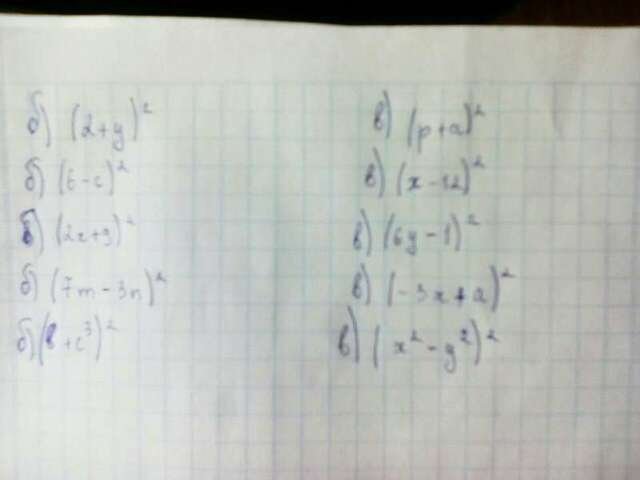 б) (2+y)² в) (p+a)²
б) (6-c)² в) (x-12)²
б) (2x+9)² в) (6y-1)²
б) (7m-3n)² в) (-3x+a)²
б) (8+c³)² в) (x²-y²)²